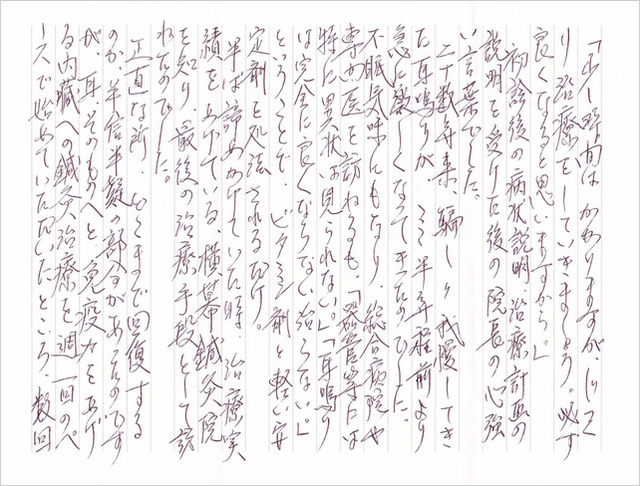 「少し時間はかかりますが、しっか
り治療をしていきましょう。必ず
良くなると思いますから。」
初診後の病状説明、治療計画の
説明を受けた後の院長の心強
い言葉でした。
二十数年来、騙し騙し我慢してき
た耳鳴りが、ここ半年程前より
急に激しくなってきたのでした。
不眠気味にもなり、総合病院や
専門医を訪ねるも、「器官等には
特に異状は見られない。」「耳鳴り
は完全に良くならない治らない。」
ということで、ビタミン剤と軽い安
定剤を処法されるだけ。
半ば諦めかけていた時、治療実
績をあげている、横幕鍼灸院
を知り、最後の治療手段として訪
れたのでした。
正直な所、どこまで回復する
のか、半信半疑の部分があったのです
が、耳、そのものへと、免疫力をあげ
る内臓への鍼灸治療を週一回のペ
ースで始めていただいたところ、数回